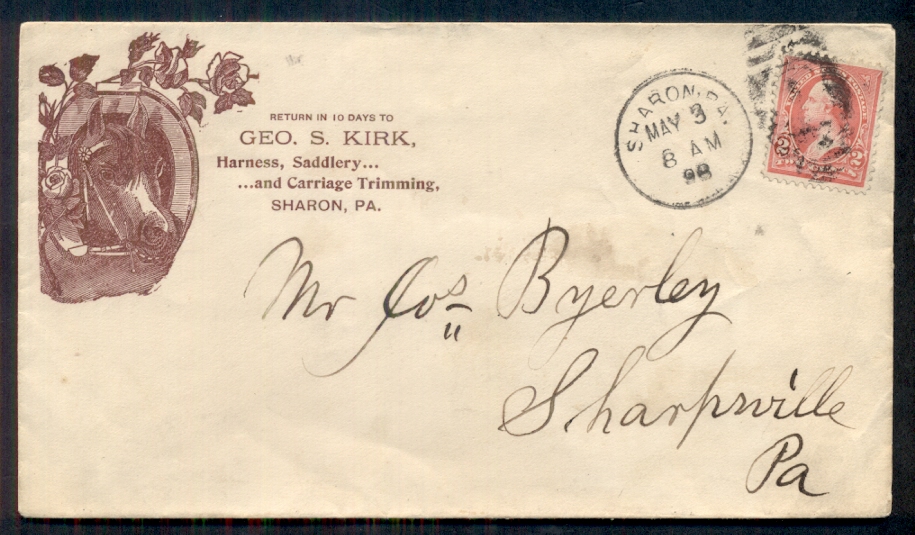 RETURN IN 10 DAYS TO
GEO. S. KIRK,
Harness, Saddlery...
...and Carriage Trimming,
SHARON, PA.
SHARON, PA.
MAY 3
8 AM
98
2 2
Mr Jos Byerley
Sharpsville
Pa